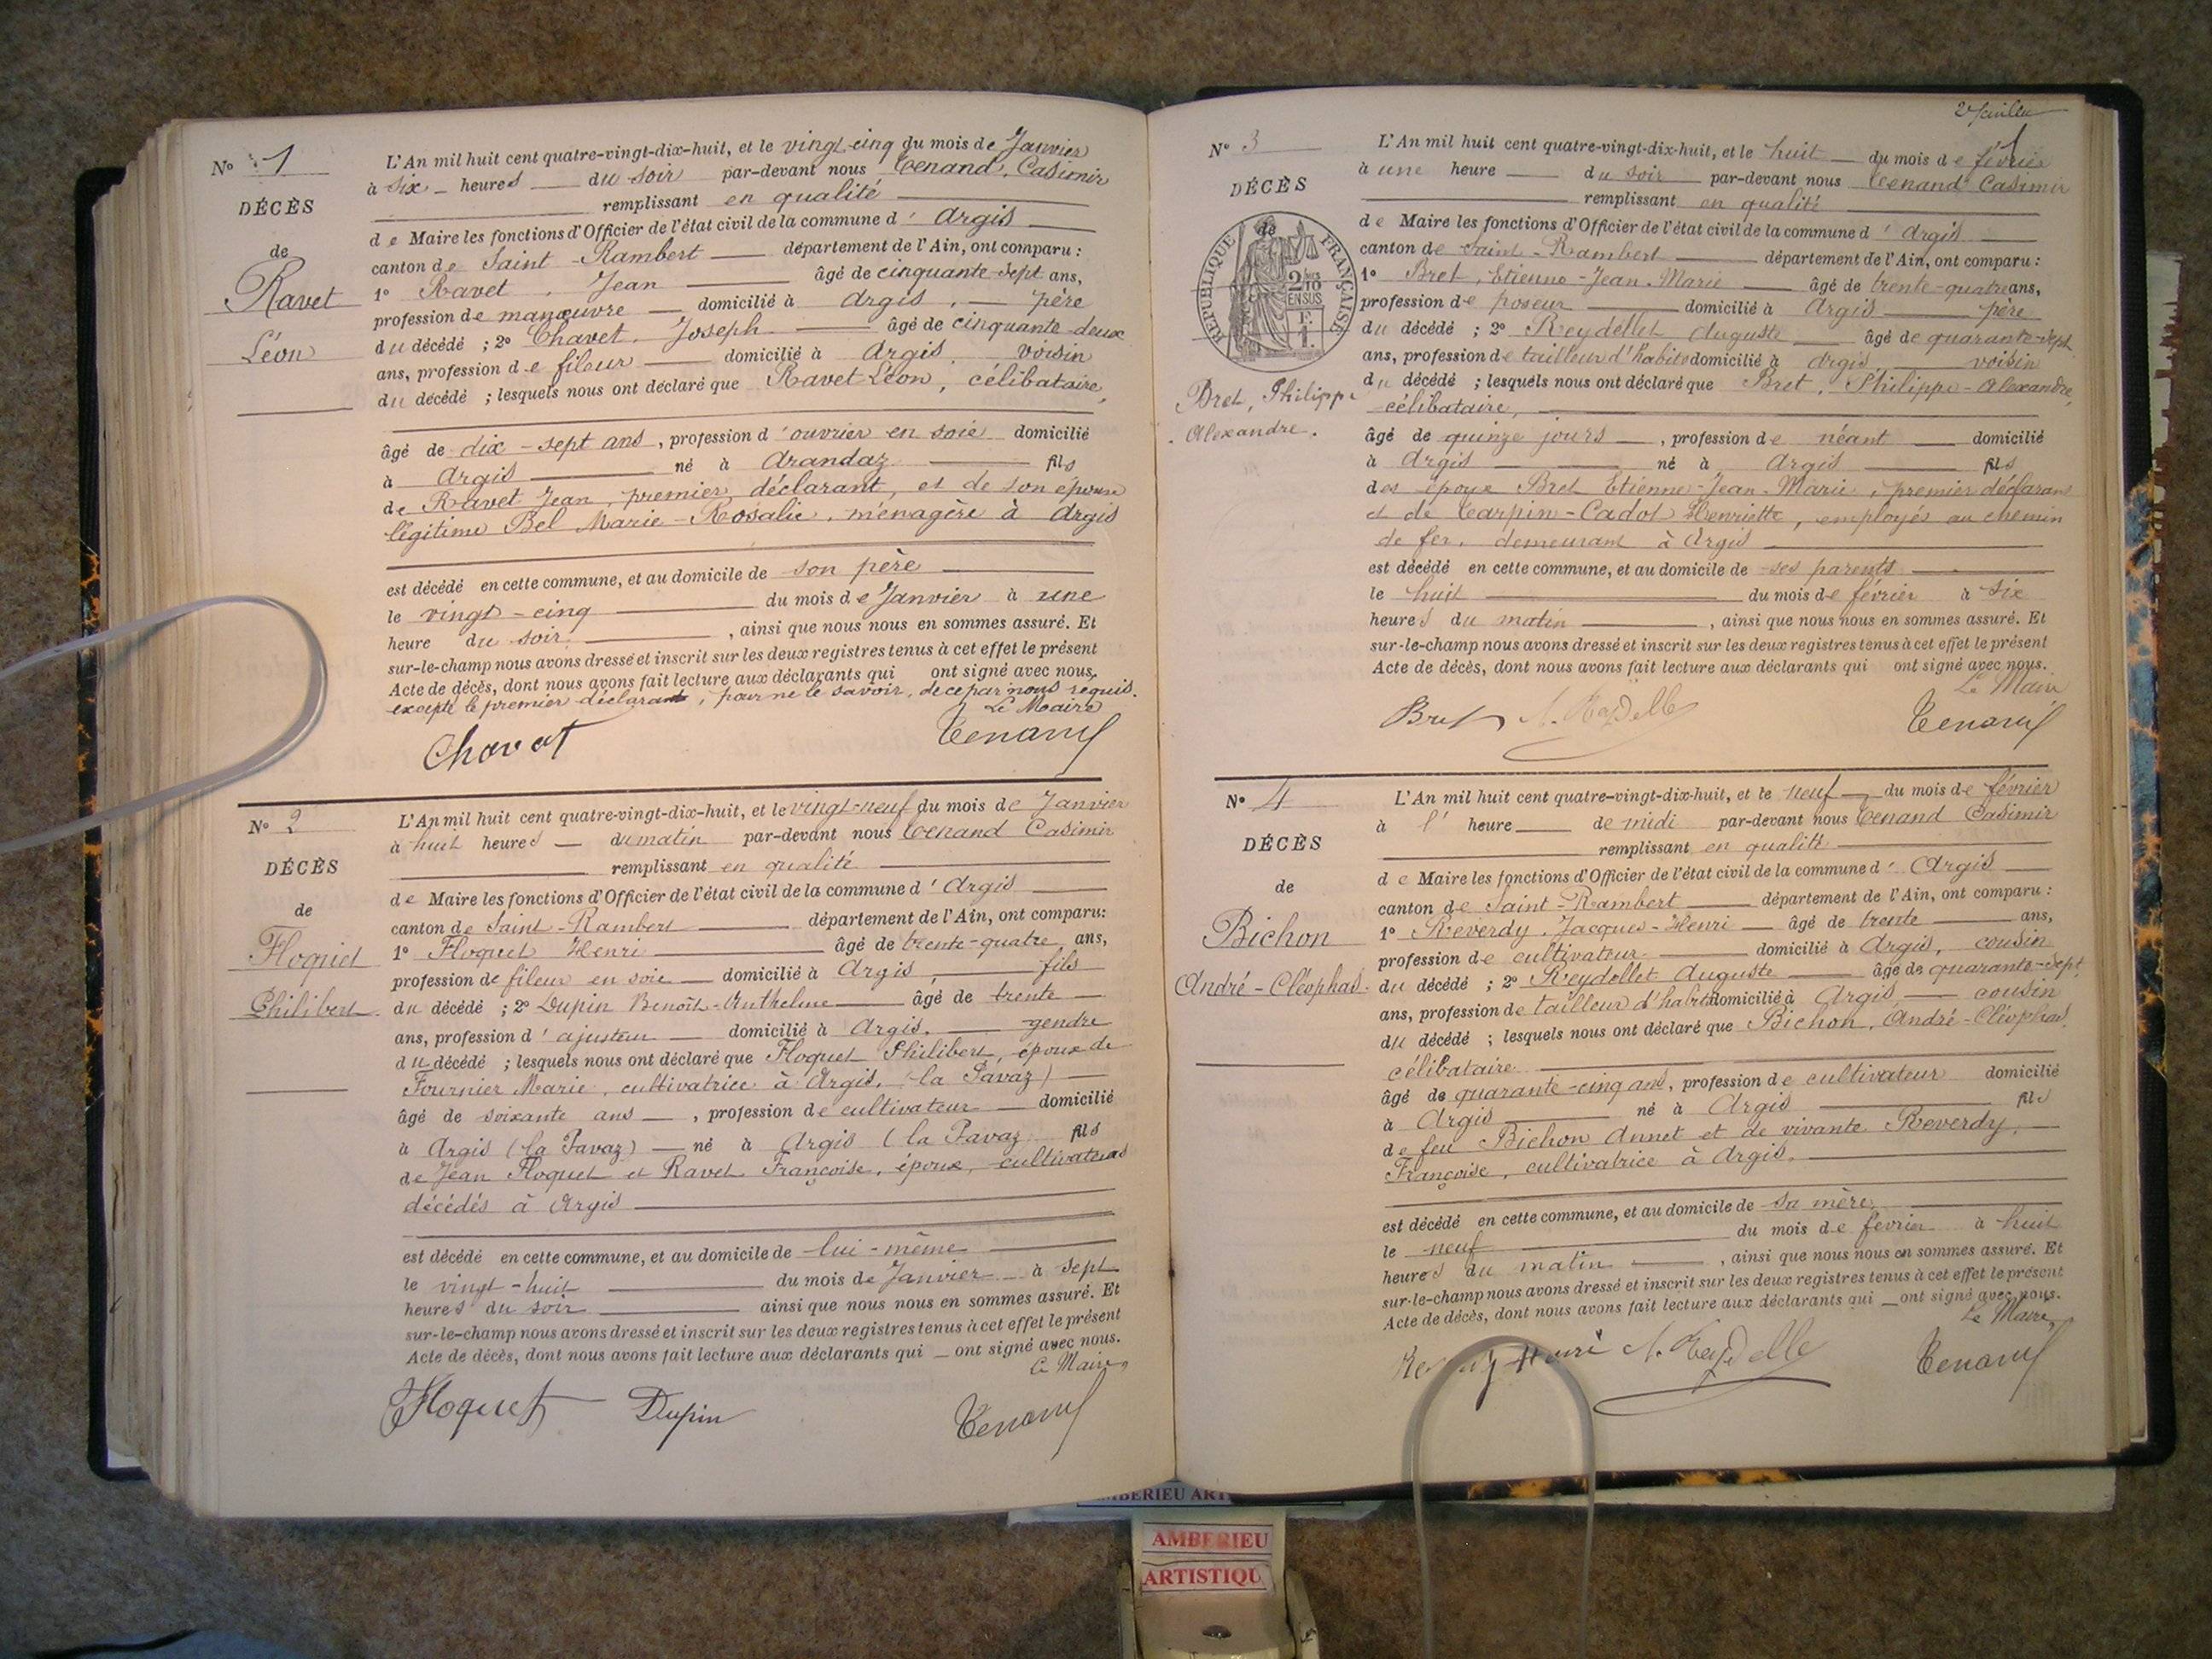 N° 1
DÉCÈS
de
Ravet
Léon
L'An mil huit cent quatre-vingt-dix-huit, et le vingt-cinq du mois de Janvier
à six heures du soir par-devant nous Tenand, Casimir
remplissant en qualité
de Maire les fonctions d'Officier de l'état civil de la commune d'Argis
canton de Saint-Rambert département de l'Ain, ont comparu :
1° Ravet, Jean âgé de cinquante-sept ans,
profession de manœuvre domicilié à Argis, père
du décédé ; 2° Chavet, Joseph âgé de cinquante-deux
ans, profession de fileur domicilié à Argis, voisin
du décédé ; lesquels nous ont déclaré que Ravet Léon, célibataire,
âgé de dix-sept ans, profession d'ouvrier en soie domicilié
à Argis né à Arandaz fils
de Ravet Jean, premier déclarant, et de son épouse
légitime Bel Marie-Rosalie, ménagère à Argis
est décédé en cette commune, et au domicile de son père
le vingt-cinq du mois de Janvier à une
heure du soir, ainsi que nous nous en sommes assuré. Et
sur-le-champ nous avons dressé et inscrit sur les deux registres tenus à cet effet le présent
Acte de décès, dont nous avons fait lecture aux déclarants qui ont signé avec nous,
excepté le premier déclarant, pour ne le savoir, de ce par nous requis.
Le Maire
Chavet Tenand
N° 2
DÉCÈS
de
Floquet
Philibert
L'An mil huit cent quatre-vingt-dix-huit, et le vingt-neuf du mois de Janvier
à huit heures du matin par-devant nous Tenand Casimir
remplissant en qualité
de Maire les fonctions d'Officier de l'état civil de la commune d'Argis
canton de Saint-Rambert département de l'Ain, ont comparu :
1° Floquet Henri âgé de trente-quatre ans,
profession de fileur en soie domicilié à Argis, fils
du décédé ; 2° Dupin Benoît-Anthelme âgé de trente
ans, profession d'ajusteur domicilié à Argis, gendre
du décédé ; lesquels nous ont déclaré que Floquet Philibert, époux de
Fournier Marie, cultivatrice à Argis, (la Pavaz)
âgé de soixante ans, profession de cultivateur domicilié
à Argis (la Pavaz) né à Argis (la Pavaz fils
de Jean Floquet et Ravet Françoise, époux, cultivateurs
décédés à Argis
est décédé en cette commune, et au domicile de lui-même
le vingt-huit du mois de Janvier à sept
heures du soir ainsi que nous nous en sommes assuré. Et
sur-le-champ nous avons dressé et inscrit sur les deux registres tenus à cet effet le présent
Acte de décès, dont nous avons fait lecture aux déclarants qui ont signé avec nous.
Le Maire,
Floquet Dupin Tenand
N° 3
DÉCÈS
de
RÉPUBLIQUE FRANÇAISE
2/10
EN SUS
Bret, Philippe
Alexandre.
L'An mil huit cent quatre-vingt-dix-huit, et le huit du mois de février
à une heure du soir par-devant nous Tenand Casimir
remplissant en qualité
de Maire les fonctions d'Officier de l'état civil de la commune d'Argis
canton de Saint-Rambert département de l'Ain, ont comparu :
1° Bret, Etienne-Jean-Marie âgé de trente-quatre ans,
profession de poseur domicilié à Argis père
du décédé ; 2° Reydellet Auguste âgé de quarante-sept
ans, profession de tailleur d'habits domicilié à Argis, voisin
du décédé ; lesquels nous ont déclaré que Bret, Philippe-Alexandre,
célibataire,
âgé de quinze jours, profession de néant domicilié
à Argis né à Argis fils
des époux Bret Etienne-Jean-Marie, premier déclarant
et de Carpin-Cadot Henriette, employés au chemin
de fer, demeurant à Argis
est décédé en cette commune, et au domicile de ses parents
le huit du mois de février à six
heures du matin, ainsi que nous nous en sommes assuré. Et
sur-le-champ nous avons dressé et inscrit sur les deux registres tenus à cet effet le présent
Acte de décès, dont nous avons fait lecture aux déclarants qui ont signé avec nous.
Le Maire
Bret A. Reydelle Tenand
N° 4
DÉCÈS
de
Bichon
André-Cléophas.
L'An mil huit cent quatre-vingt-dix-huit, et le neuf du mois de février
à l'heure de midi par-devant nous Tenand Casimir
remplissant en qualité
de Maire les fonctions d'Officier de l'état civil de la commune d'Argis
canton de Saint-Rambert département de l'Ain, ont comparu :
1° Reverdy, Jacques-Henri âgé de trente ans,
profession de cultivateur domicilié à Argis, cousin
du décédé ; 2° Reydellet Auguste âgé de quarante-sept
ans, profession de tailleur d'habits domicilié à Argis, cousin
du décédé ; lesquels nous ont déclaré que Bichon, André-Cléophas,
célibataire
âgé de quarante-cinq ans, profession de cultivateur domicilié
à Argis né à Argis fils
de feu Bichon Annet et de vivante Reverdy,
Françoise, cultivatrice à Argis,
est décédé en cette commune, et au domicile de sa mère
le neuf du mois de février à huit
heures du matin, ainsi que nous nous en sommes assuré. Et
sur-le-champ nous avons dressé et inscrit sur les deux registres tenus à cet effet le présent
Acte de décès, dont nous avons fait lecture aux déclarants qui ont signé avec nous.
Le Maire,
Henri A. Reydelle Tenand
AMBERIEU
ARTISTIQU